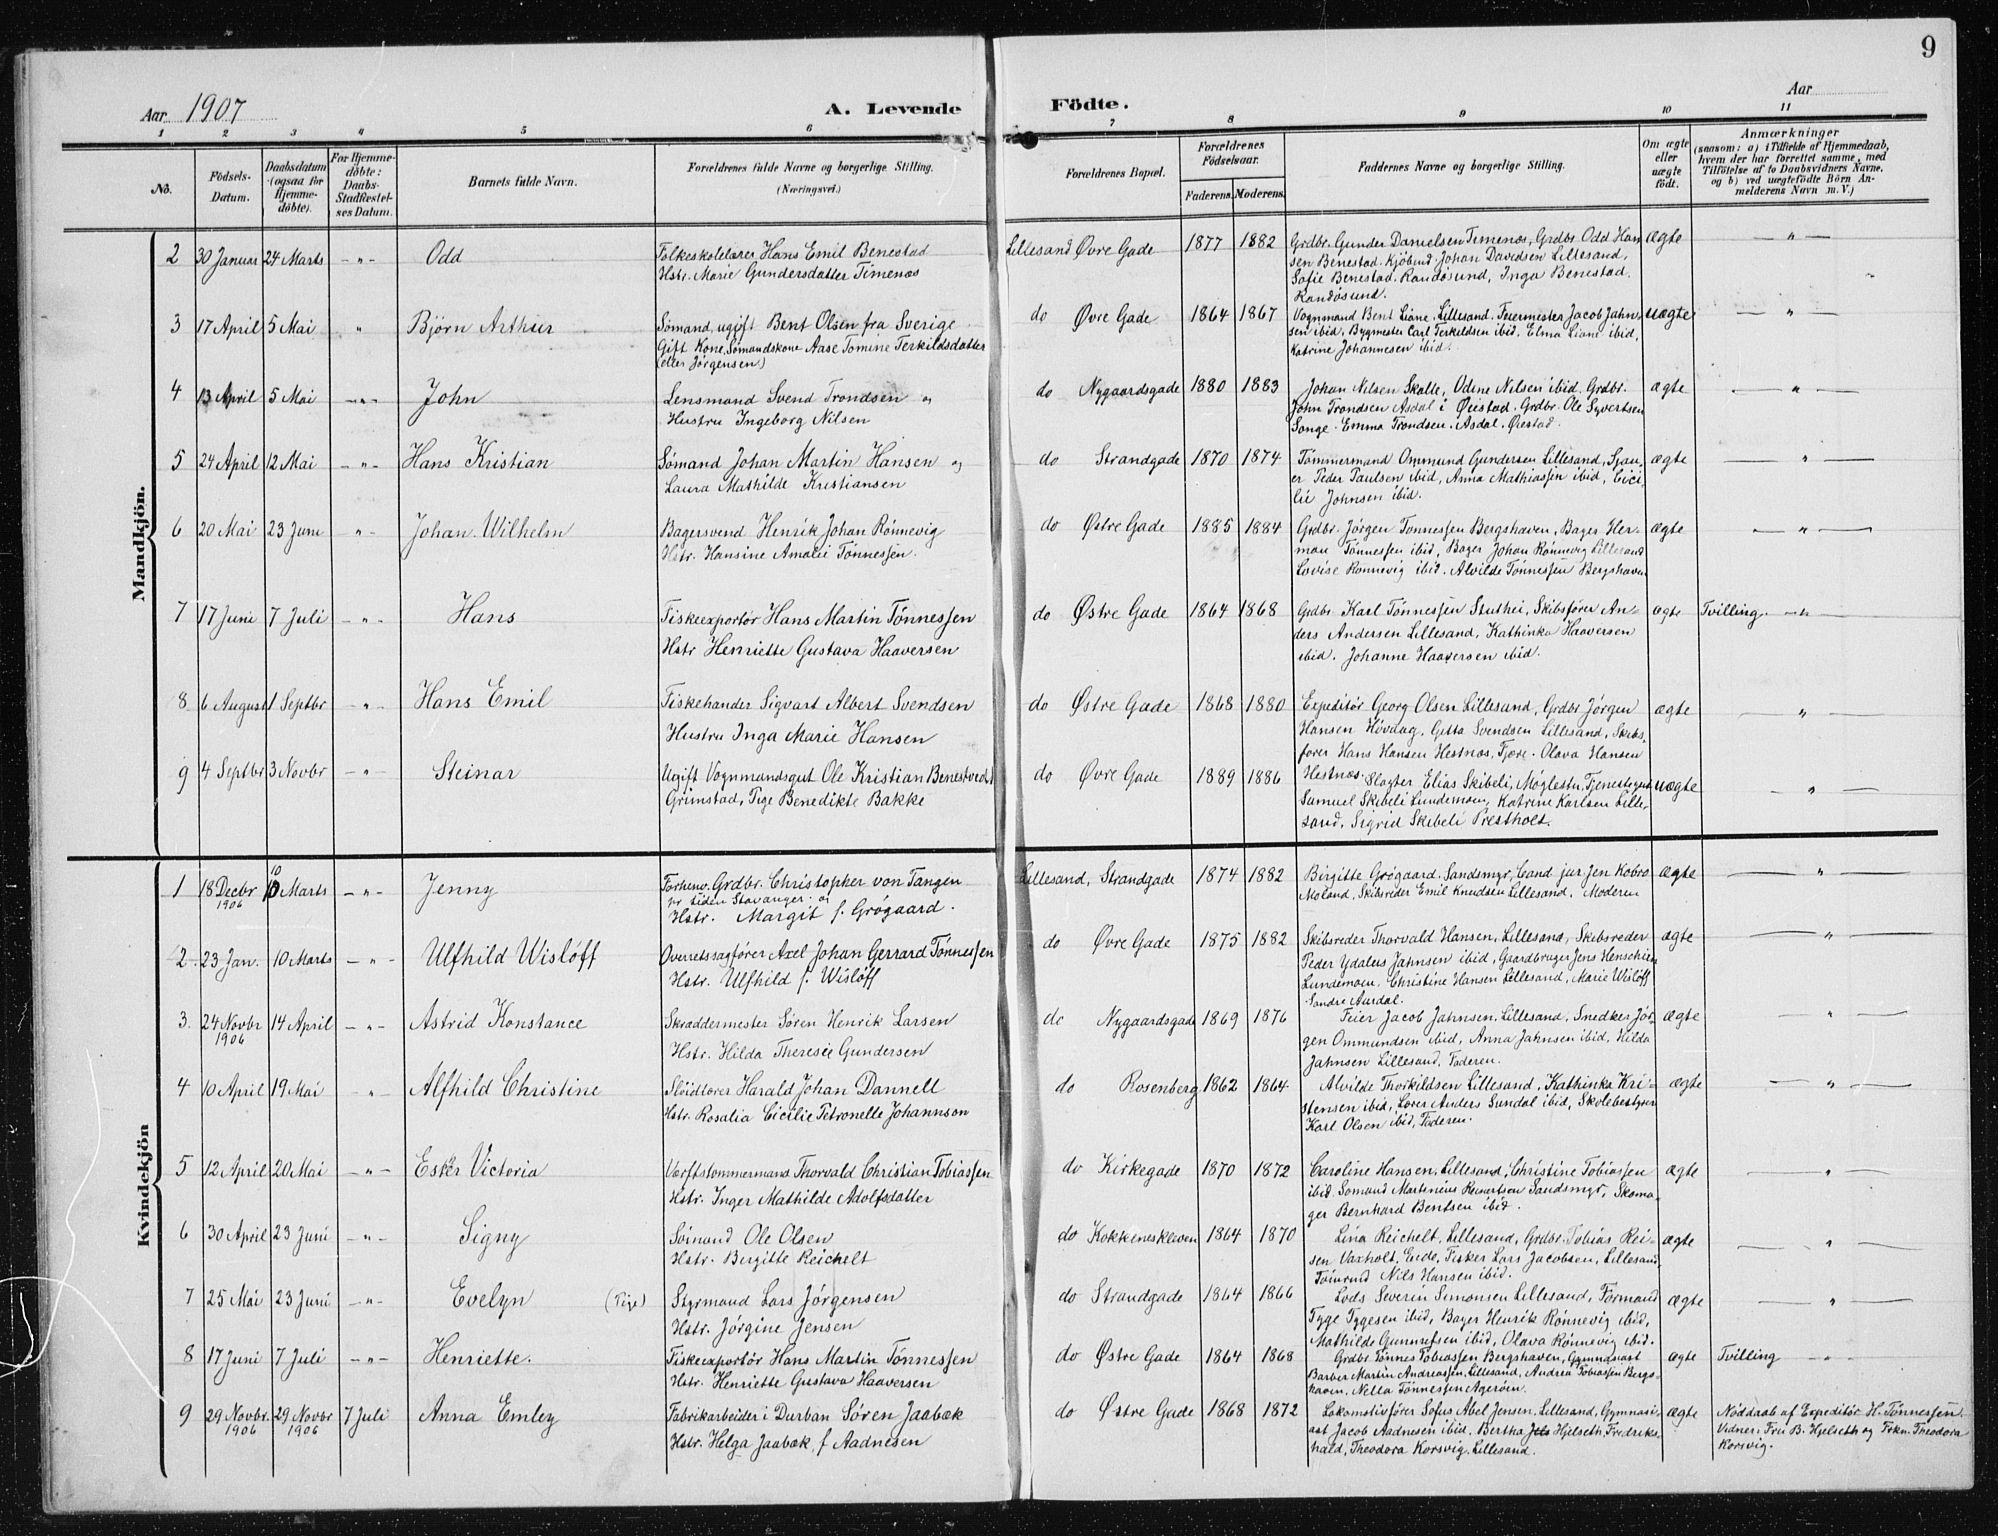 9
Aar 1907 A. Levende Födte. Aar
1 2 3 4 5 6 7 8 9 10 11
No.
Födsels-Datum.
Daabsdatum (ogsaa for Hjemme-döbte).
For Hjemme-döbte: Daabs-Stadfæstel-ses Datum.
Barnets fulde Navn.
Forældrenes fulde Navne og borgerlige Stilling. (Næringsvei.)
Forældrenes Bopæl.
Forældrenes Födselsaar.
Faderens. Moderens.
Faddernes Navne og borgerlige Stilling.
Om ægte eller uægte födt.
Anmærkninger
(saasom: a) i Tilfælde af Hjemmedaab, hvem der har forrettet samme, med Tilföielse af to Daabsvidners Navne, og b) ved uægtefödte Börn An-melderens Navn m. V.)
Mandkjön.
2 30 Januar 24 Marts -"- Odd Folkeskolelærer Hans Emil Benestad Lillesand Øvre Gade 1877 1882 Grdbr. Gunder Danielsen Timenes, Grdbr Odd Han- ægte — " —
Hstr. Marie Gundersdatter Timenæs sen Benestad. Kjøbmd Johan Davidsen Lillesand,
Sofie Benestad. Randøsund, Inga Benestad.
Randøsund.
3 17 April 5 Mai " Bjørn Arthur Sömand, ugift Bent Olsen fra Sverige do Øvre Gade 1864 1867 Vognmand Bent Liane, Lillesand. Feiermester Jacob Jahn- uægte — " —
Gift Kone, Sømandskone Aase Tomine Terkildsdatter sen ibid, Bygmester Carl Terkildsen ibid. Elma Liane ibid,
(eller Jörgensen) Katrine Johannesen ibid.
4 13 April 5 Mai -"- John Lensmand Svend Trondsen og do Nygaardsgade 1880 1883 Johan Nilsen Skalle, Odine Nilsen ibid Grdbr. ægte — " —
Hustru Ingeborg Nilsen John Trondsen Asdal i Øiestad, Grdbr. Ole Syvertsen
Songe. Emma Trondsen. Asdal. Øiestad.
5 24 April 12 Mai -"- Hans Kristian Sømand Johan Martin Hansen og do Strandgade 1870 1874 Tømmermand Ommund Gundersen Lillesand, Sjau- ægte — " —
Laura Mathilde Kristiansen er Peder Paulsen ibid, Anna Mathiassen ibid, Cici-
lie Johnsen ibid.
6 20 Mai 23 Juni -"- Johan Wilhelm Bagersvend Henrik Johan Rønnevig do Østre Gade 1885 1884 Grdbr. Jörgen Tönnessen Bergshaven, Bager Her- ægte — " —
Hstr. Hansine Amalie Tønnessen. man Tønnessen ibid, Bager Johan Rønnevig Lillesand
Lovise Rønnevig ibid. Alvilde Tønnessen Bergshaven
7 17 Juni 7 Juli -"- Hans Fiskeexportör Hans Martin Tönnessen do Østre Gade 1864 1868 Grdbr Karl Tønnessen Stuthei, Skibsfører An- ægte Tvilling. —"—
Hstr Henriette Gustava Haaversen ders Andersen Lillesand, Kathinka Haaversen
ibid. Johanne Haaversen ibid.
8 6 August 1 Septbr -"- Hans Emil Fiskehandler Sigvart Albert Svendsen do Østre Gade 1868 1880 Expeditör Georg Olsen Lillesand, Grdbr Jörgen ægte — " —
Hustru Inga Marie Hansen Hansen Høvdag, Gitta Svendsen Lillesand, Skibs-
fører Hans Hansen Hestnæs, Fjære. Olava Hansen
Hestnæs.
9 4 Septbr 3 Novbr -"- Steinar Ugift Vogn­mandsgut Ole Kristian Benestvedt do Øvre Gade 1889 1886 Slagter Elias Skibeli, Møglestu, Tjenestegut uægte — " —
Grimstad, Pige Benedikte Bakke Samuel Skibeli Lundemoen, Katrine Karlsen Lille-
sand, Sigrid Skibeli Prestholt.
Kvindekjön
1 18 Decbr 1906 10 Marts -"- Jenny Forhenv. Grdbr. Christopher von Tangen Lillesand, Strandgade 1874 1882 Birgitte Grögaard. Sandsmyr, Cand jur. Jen Kobro ægte — " —
pr tiden Stavanger. og Moland, Skibsreder Emil Knudsen Lillesand. Moderen
Hstr. Margit f. Grögaard.
2 23 Jan. 10 Marts -"- Ulfhild Wislöff Overretssagfører Axel Johan Gerrard Tönnessen do Øvre Gade 1875 1882 Skibsreder Thorvald Hansen, Lillesand, Skibsreder ægte — " —
Hstr. Ulfhild f. Wislöff Peder Ydalus Jahnsen ibid, Gaardbruger Jens Henschien
Lundemoen, Christine Hansen Lillesand, Marie Wislöff
Søndre Aurdal.
3. 24 Novbr 1906 14 April -"- Astrid Konstance Skræddermester Sören Henrik Larsen do Nygaardsgade 1869 1876 Feier Jacob Jahnsen, Lillesand, Snedker Jör- ægte — " —
Hstr. Hilda Theresie Gundersen gen Ommundsen ibid, Anna Jahnsen ibid, Hilda
Jahnsen Lillesand, Faderen.
4 10 April 19 Mai -"- Alfhild Christine Harald Johan Dannell do Rosenberg 1862 1864 Alvilde Thorkildsen Lillesand, Kathinka Kri- ægte — " —
Hstr. Rosalia Cicilie Petronelle Johannson stensen ibid, Lærer Anders Sundal ibid, Skolebestyrer
Karl Olsen ibid, Faderen.
5 12 April 20 Mai -"- Ester Victoria Værftstømmermand Thorvald Christian Tobiassen do Kirkegade 1870 1872 Caroline Hansen, Lillesand, Christine Tobiassen ægte — " —
Hstr. Inger Mathilde Adolfsdatter ibid. Sømand Martinius Reinertsen Sandsmyr, Skoma-
ger Bernhard Bentsen ibid.
6 30 April 23 Juni -"- Signy Sömand Ole Olsen do Kokkeneskleven 1864 1870 Lina Reichelt, Lillesand, Grdbr. Tobias Rei- ægte — " —
Hstr. Birgitte Reichelt sen Vaxholt, Eide, Fisker Lars Jacobsen, Lillesand,
Nils Hansen ibid.
7 25 Mai 23 Juni -"- Evelyn (Pige) Styrmand Lars Jörgensen do Strandgade 1864 1866 Lods Severin Simonsen Lillesand, Formand ægte — " —
Hstr. Jörgine Jensen Tyge Tygesen ibid, Bager Henrik Rønnevig ibid,
Mathilde Gunnufsen ibid, Olava Rønnevig ibid.
8 17 Juni 7 Juli -"- Henriette. Fiskeexportör Hans Martin Tönnessen do Østre Gade 1864 1868 Grdbr Tønnes Tobiassen Bergshaven, Gymnasiast ægte Tvilling — " —
Hstr. Henriette Gustava Haaversen Barber Martin Andreassen, Lillesand, Andrea Tobiassen Bergs-
haven, Nella Tønnessen Ageröen.
9 29 Novbr. 1906 29 Novbr 1906 7 Juli Anna Emley Fabrikarbeider i Durban Sören Jaabæk do Østre Gade 1868 1872 Lokomotivfører Sofus Abel Jensen, Lillesand, Gymnasi- ægte Nöddaab af Expeditör H. Tønnessen.
Hstr. Helga Jaabæk, f Aadnesen ast Jacob Aadnesen ibid, Bertha Hjelseth, Fredriks- Vidner: Fru B. Hjelseth og Frkn. Theodora
hald, Theodora Korsvig, Lillesand. Korsvig.